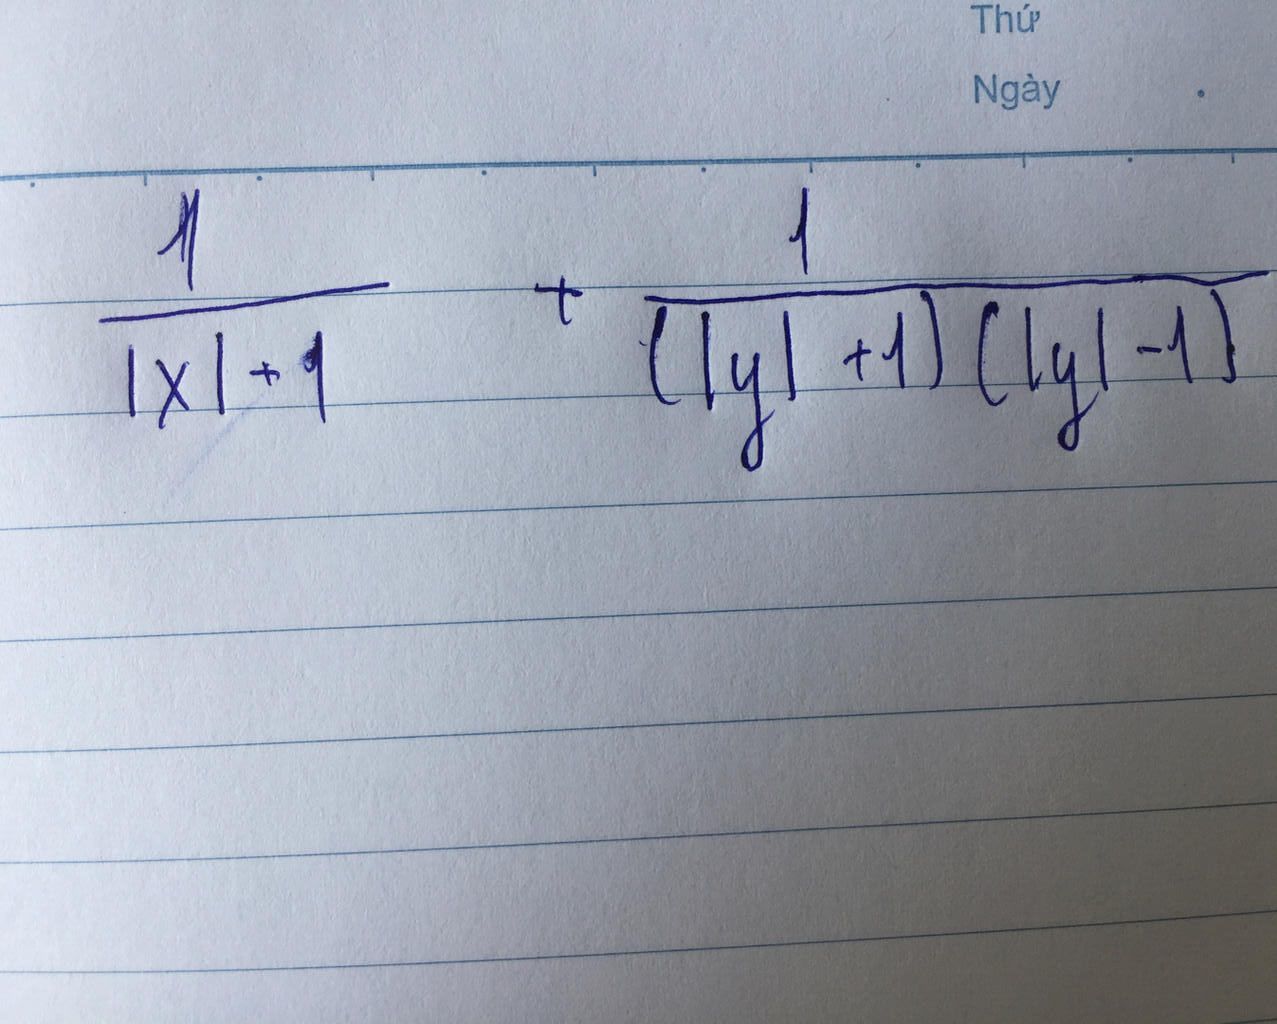 Thứ
Ngày
1 1
|x| + 1 + (|y| +1) (|y| -1)